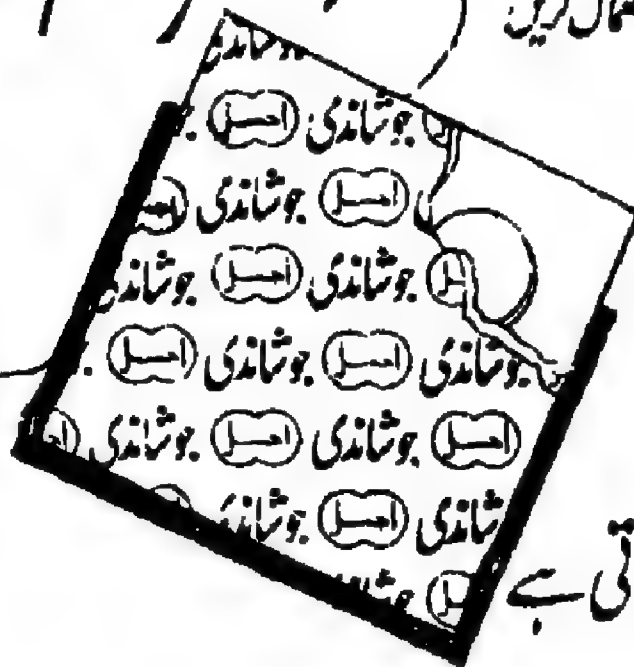 کریں
جوشاندی اجمل
اجمل جوشاندی
جوشاندی اجمل جوشاندی
جوشاندی اجمل جوشاندی اجمل
اجمل جوشاندی اجمل جوشاندی
شاندی اجمل جوشاند
تی ہے